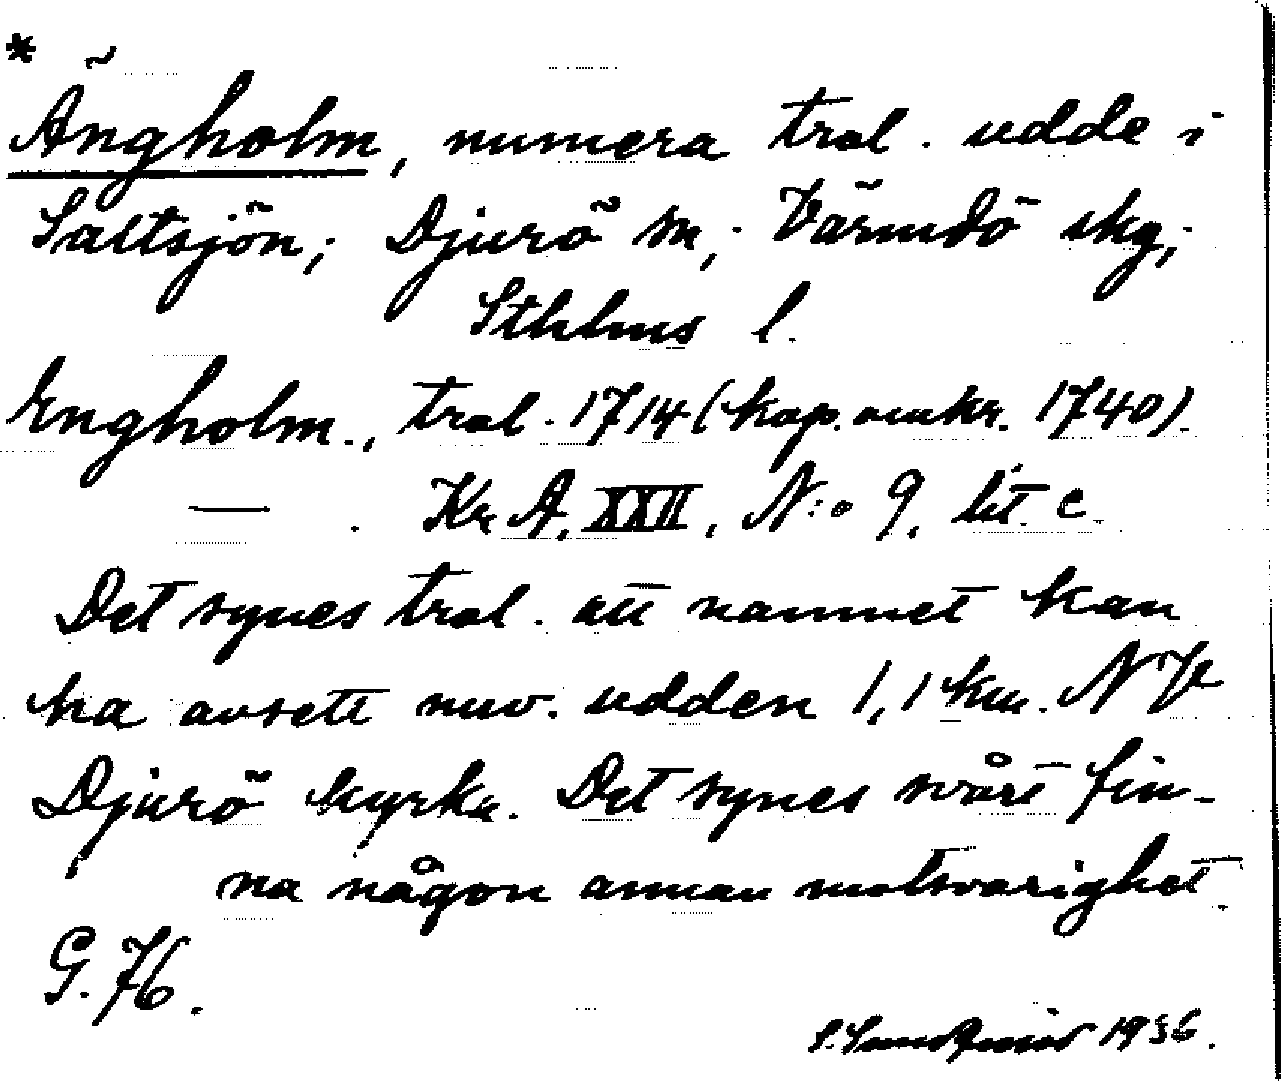 *
Ängholm, numera trol. udde i
Saltsjön; Djurö sn; Värmdö skg;
Sthlms l.
Engholm., trol. 1714 (kop. omkr. 1740).
— . Kr A, XXII, N:o 9, lit. c.
Det synes trol. att namnet kan
ha avsett nuv. udden 1,1 km. NV
Djurö kyrka. Det synes svårt fin-
na någon annan motsvarighet.
G. 76.
S. 1936.